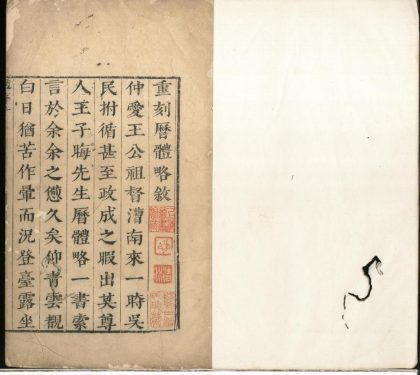 重刻曆體略敘
仲愛王公祖督漕南來一時吳
民拊循甚至政成之暇出其尊
人王子晦先生曆體略一書索
言於余余之憊久矣仰青雲覩
白日猶苦作暈而況登臺露坐